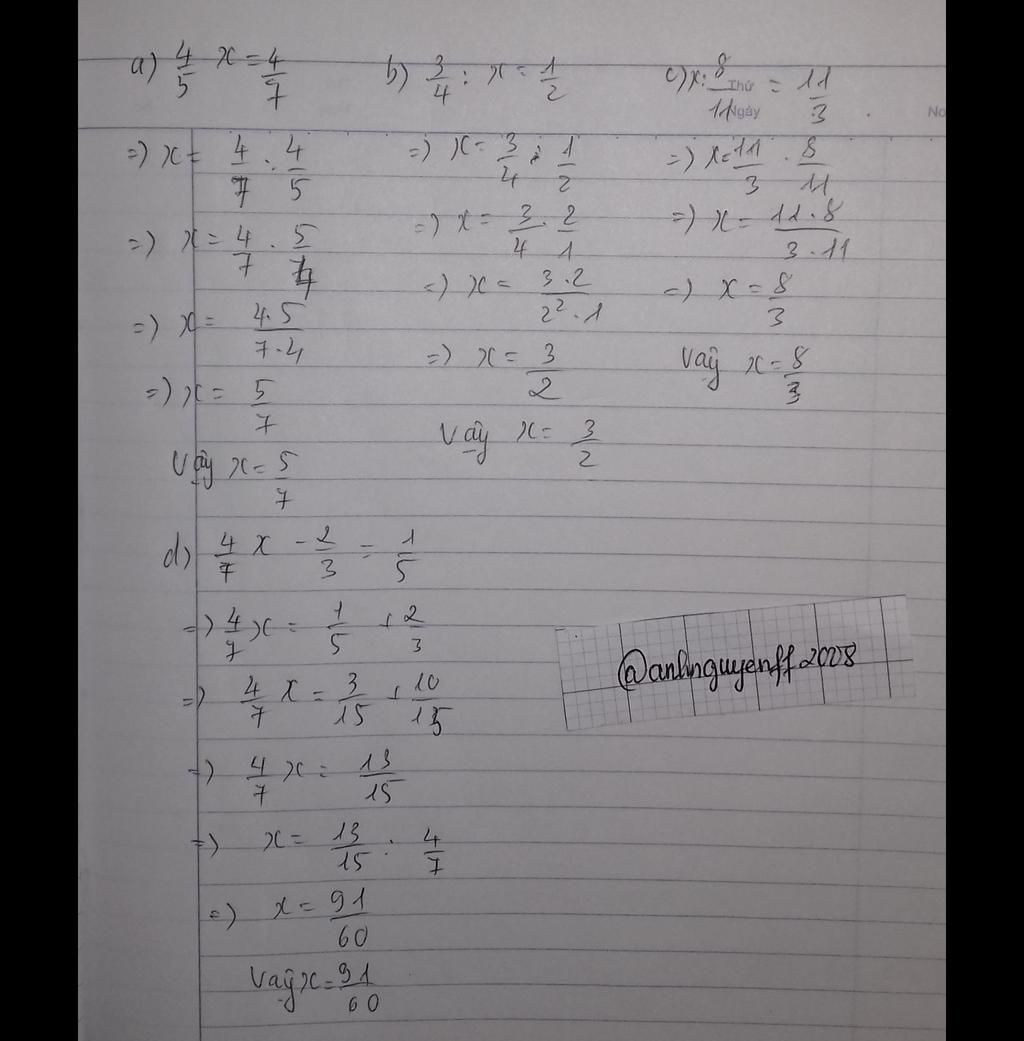 a) 4/5 x = 4/7
=) x = 4/7 : 4/5
=) x = 4/7 . 5/4
=) x = 4.5/7.4
=) x = 5/7
Vậy x = 5/7
b) 3/4 : x = 1/2
=) x = 3/4 : 1/2
=) x = 3/4 . 2/1
=) x = 3.2/2².1
=) x = 3/2
Vậy x = 3/2
Thứ
Ngày
No
c) x : 8/11 = 11/3
=) x = 11/3 . 8/11
=) x = 11.8/3.11
=) x = 8/3
Vậy x = 8/3
d) 4/7 x - 2/3 = 1/5
=) 4/7 x = 1/5 + 2/3
=) 4/7 x = 3/15 + 10/15
=) 4/7 x = 13/15
=) x = 13/15 : 4/7
=) x = 91/60
Vậy x = 91/60
@anhnguyenff2008